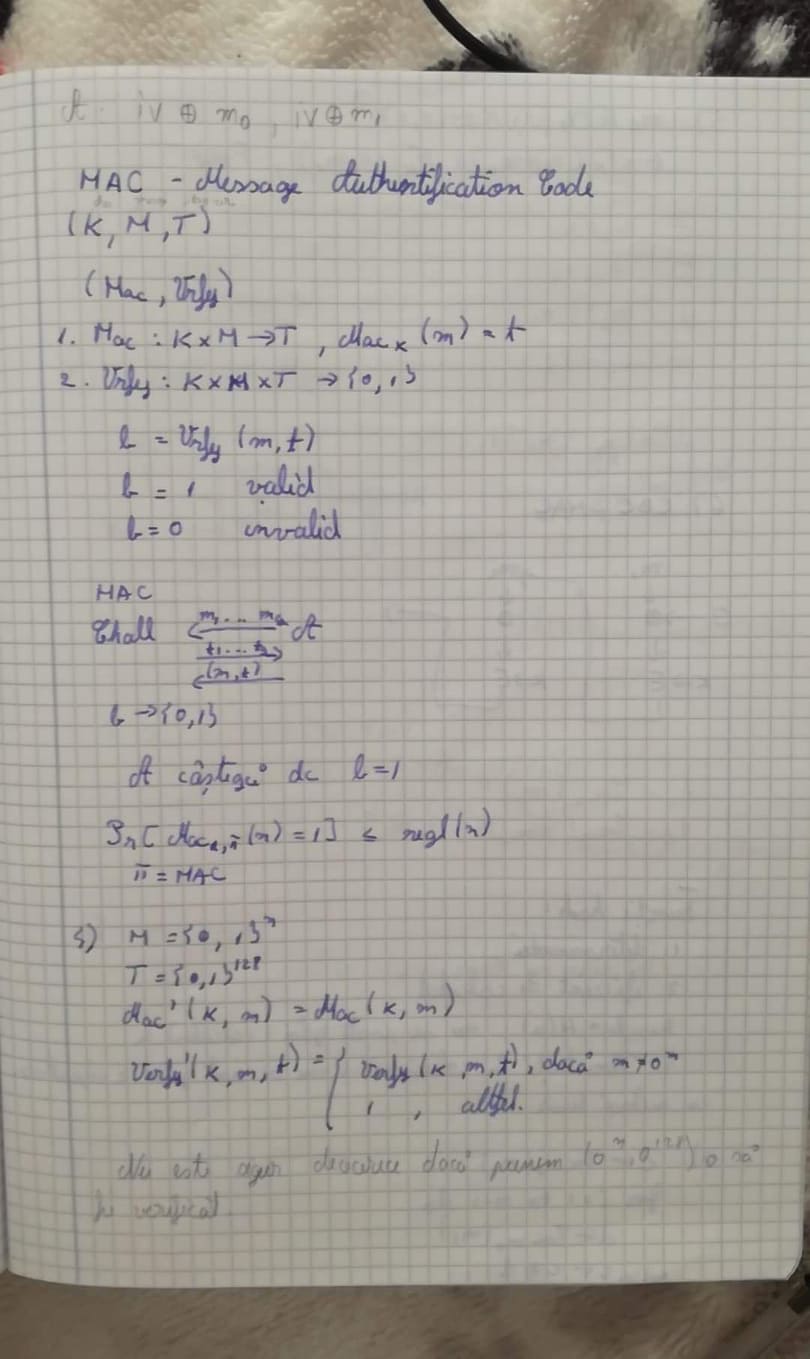 A. iv ⊕ m₀, iv ⊕ m₁
MAC - Message Authentification Code
(K, M, T)
(Mac, Vrfy)
1. Mac : K x M → T, Mac_K (m) = t
2. Vrfy : K x M x T → {0,1}
b = Vrfy (m, t)
b = 1 valid
b = 0 invalid
MAC
Chall m₁ ... A
t₁ ...
(m, t)
b → {0,1}
A câștigă dc b=1
Pr[ Mac_A,π (n) = 1] ≤ negl(n)
π = MAC
3) M = {0,1}ⁿ
T = {0,1}¹²⁸
Mac' (K, m) = Mac (K, m)
Verfy' (K, m, t) = { Verfy (K, m, t), dacă m ≠ 0ⁿ
1, altfel.
Nu este sigur deoarece dacă punem (0ⁿ, 0¹²⁸) o să
fie verificat